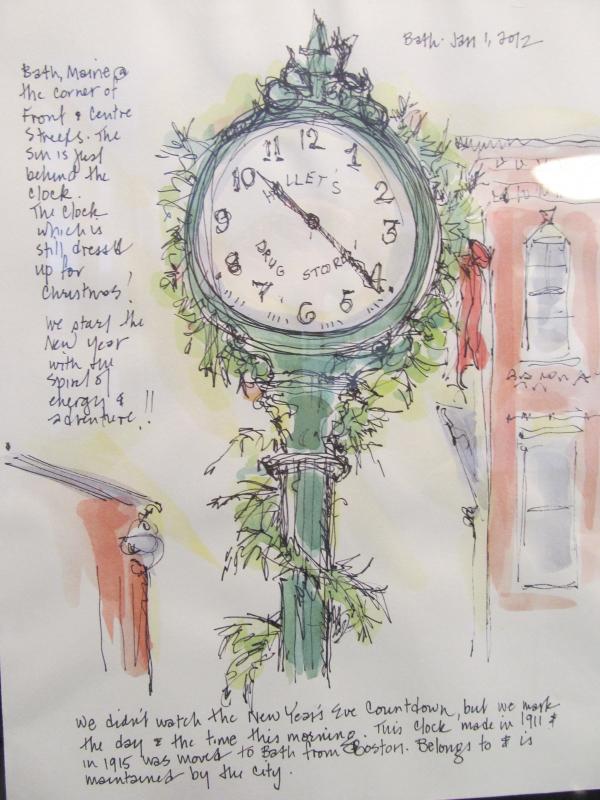 Bath. Jan 1, 2012
Bath, Maine @
the corner of
Front & Centre
Streets. The
Sun is just
behind the
clock.
The clock
which is
still dressed
up for
Christmas!
We start the
New Year
with the
spirit of
energy &
adventure!!
12
11 1
10 2
HALLET'S
9 3
DRUG STORE
8 4
7 5
6
We didn't watch the New Year's Eve Countdown, but we mark
the day & the time this morning. This clock made in 1911 &
in 1915 was moved to Bath from Boston. Belongs to & is
maintained by the city.